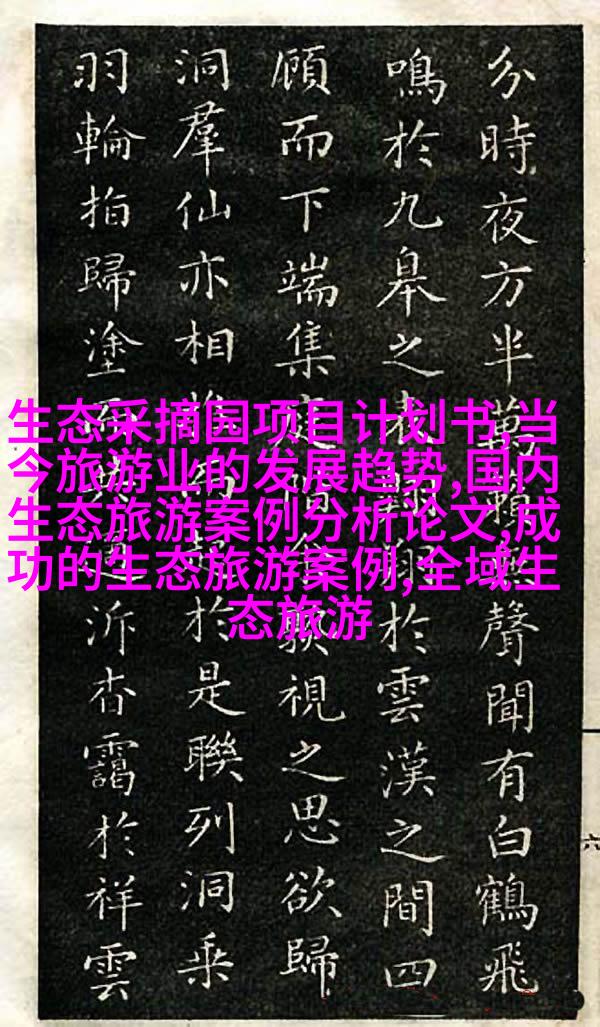 生态采摘园项目计划书,当
今旅游业的发展趋势,国内
生态旅游案例分析论文,成
功的生态旅游案例,全域生
态旅游
分時夜方半萬籟無聲聞有白鶴飛
鳴於九皋之表翱翔於雲漢之間四
顧而下端集視之思欲歸
洞羣仙亦相於是聯列洞乘
羽輪拍歸塗泝杳靄於祥雲
六